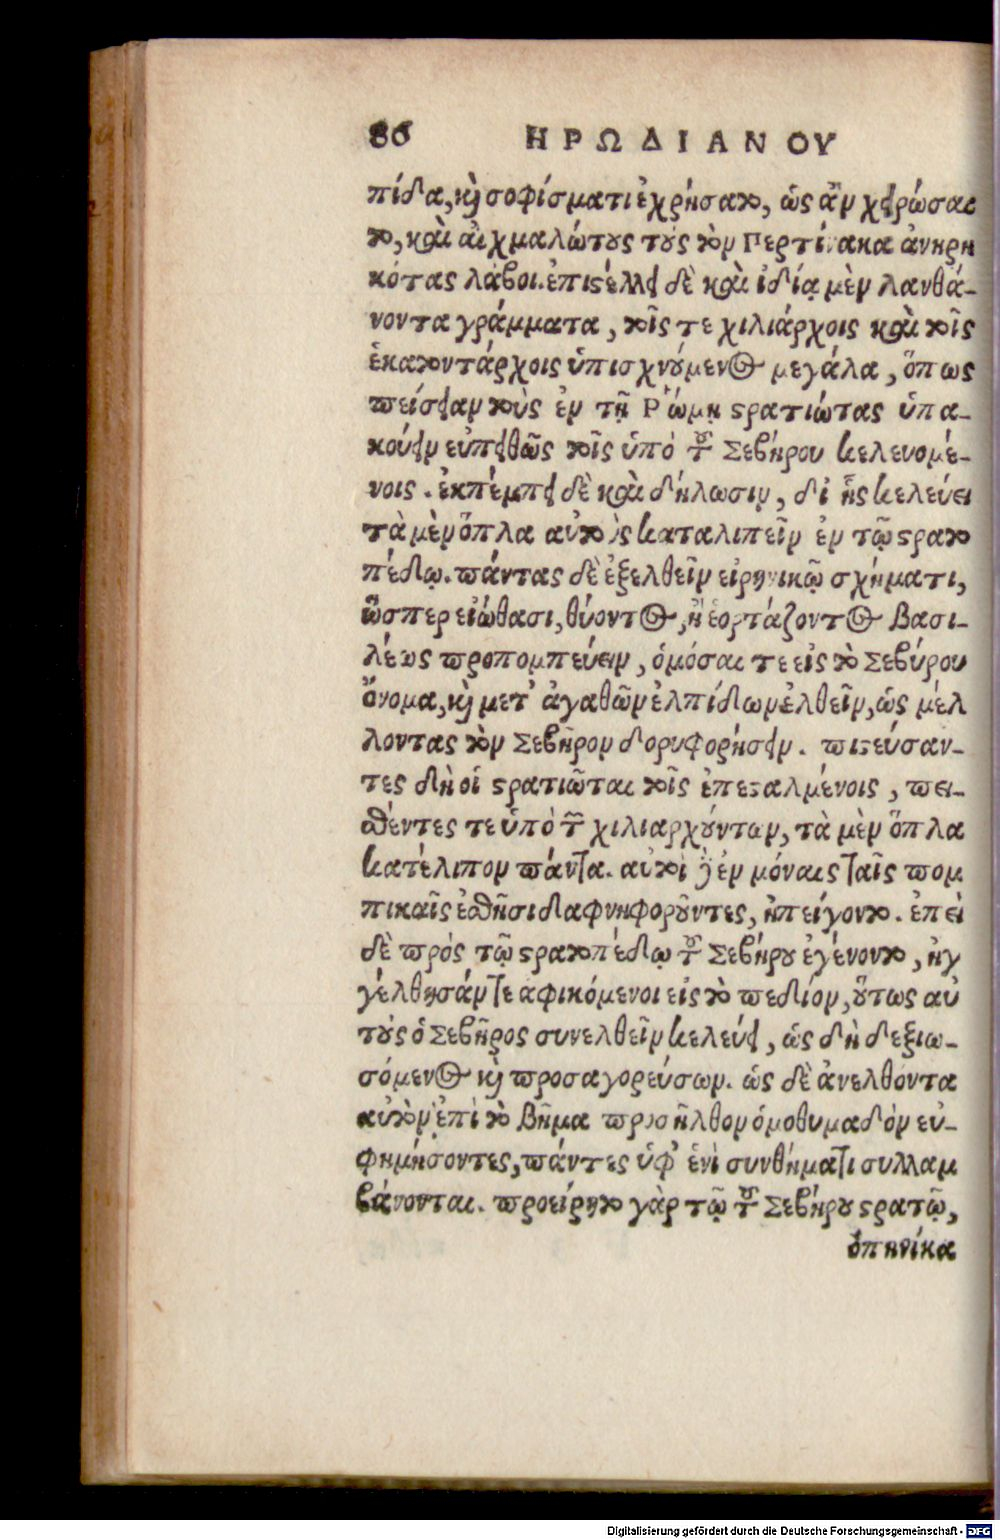 86 ΗΡΩΔΙΑΝΟΥ
πίδα, καὶ σοφίσματι ἐχρήσατο, ὡς ἂν χειρώσαι
το, καὶ αἰχμαλώτους τοὺς τὸν Περτίνακα ἀνῃρη
κότας λάβοι. ἐπιστέλλει δὲ καὶ ἰδίᾳ μὲν λανθά-
νοντα γράμματα, τοῖς τε χιλιάρχοις καὶ τοῖς
ἑκατοντάρχοις ὑπισχνούμενος μεγάλα, ὅπως
πείσειαν τοὺς ἐν τῇ Ῥώμῃ στρατιώτας ὑπα-
κούειν εὐπειθῶς τοῖς ὑπὸ τοῦ Σεβήρου κελευομέ-
νοις. ἐκπέμπει δὲ καὶ δήλωσιν, δι ἧς κελεύει
τὰ μὲν ὅπλα αὐτοὺς καταλιπεῖν ἐν τῷ στρατο
πέδῳ. πάντας δὲ ἐξελθεῖν εἰρηνικῷ σχήματι,
ὥσπερ εἰώθασι, θύοντος, ἢ ἑορτάζοντος βασι-
λέως προπομπεύειν, ὁμόσαι τε εἰς τὸ Σεβύρου
ὄνομα, καὶ μετ' ἀγαθῶν ἐλπίδων ἐλθεῖν, ὡς μέλ
λοντας τὸν Σεβῆρον δορυφορήσειν. πιστεύσαν-
τες δὴ οἱ στρατιῶται τοῖς ἐπεσταλμένοις, πει-
σθέντες τε ὑπὸ τῶν χιλιαρχούντων, τὰ μὲν ὅπλα
κατέλιπον πάντα. αὐτοὶ δ' ἐν μόναις ταῖς πομ
πικαῖς ἐσθῆσι δαφνηφοροῦντες, ἠπείγοντο. ἐπεὶ
δὲ πρὸς τῷ στρατοπέδῳ τοῦ Σεβήρου ἐγένοντο, ἠγ
γέλθησάν τε ἀφικόμενοι εἰς τὸ πεδίον, οὕτως αὐ
τοὺς ὁ Σεβῆρος συνελθεῖν κελεύει, ὡς δὴ δεξιω-
σόμενος καὶ προσαγορεύσων. ὡς δὲ ἀνελθόντα
αὐτὸν ἐπὶ τὸ βῆμα προσῆλθον ὁμοθυμαδὸν εὐ-
φημήσοντες, πάντες ὑφ' ἑνὶ συνθήματι συλλαμ
βάνονται. προείρητο γὰρ τῷ τοῦ Σεβήρου στρατῷ,
ὁπηνίκα
Digitalisierung gefördert durch die Deutsche Forschungsgemeinschaft - DFG